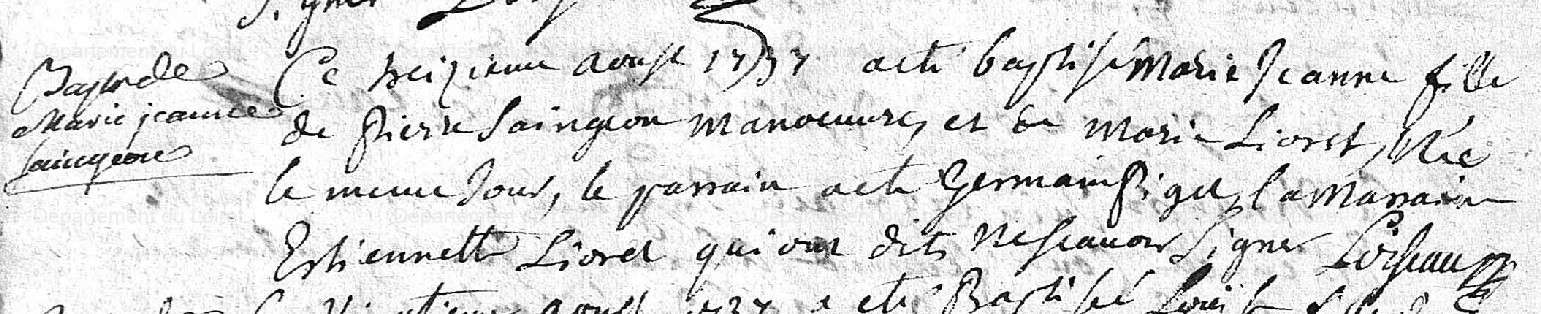 signer
Bapt de
Marie jeanne
Saingeon
Ce treizieme aoust 1737 a eté baptisé Marie Jeanne fille
de pierre Saingeon manoeuvre, et de marie Lioret, Née
le meme Jour, le parrain a eté Germain Piget, la Marraine
Estiennette Lioret qui ont dits ne scavoir signer Loiseau
aoust 1737 a eté Baptisé Louis